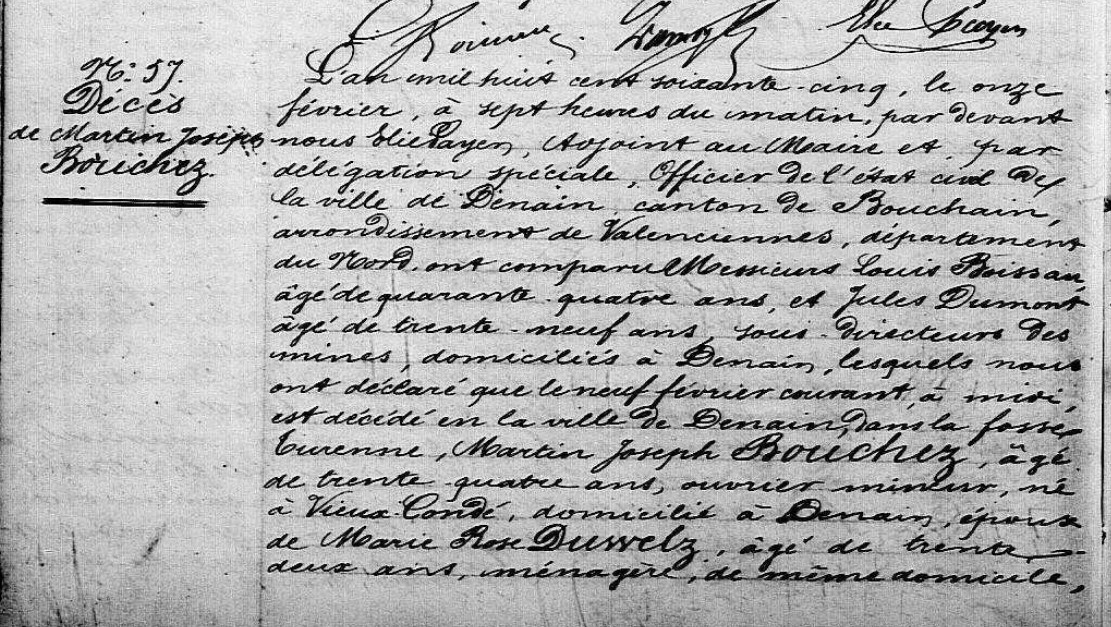 Elie Payen
N.º 57.
Décès
de Martin Joseph
Bouchez.
L'an mil huit cent soixante-cinq, le onze
février, à sept heures du matin, par devant
nous Elie Payen, Adjoint au Maire et, par
délégation spéciale, Officier de l'état civil de
la ville de Denain, canton de Bouchain,
arrondissement de Valenciennes, département
du Nord, ont comparu Messieurs Louis Boissau,
âgé de quarante-quatre ans, et Jules Dumont
âgé de trente-neuf ans, sous-directeurs des
mines, domiciliés à Denain, lesquels nous
ont déclaré que le neuf février courant, à midi,
est décédé en la ville de Denain, dans la fosse
Turenne, Martin Joseph Bouchez, âgé
de trente-quatre ans, ouvrier mineur, né
à Vieux-Condé, domicilié à Denain, époux
de Marie Rose Duwelz, âgé de trente-
deux ans, ménagère, de même domicile,